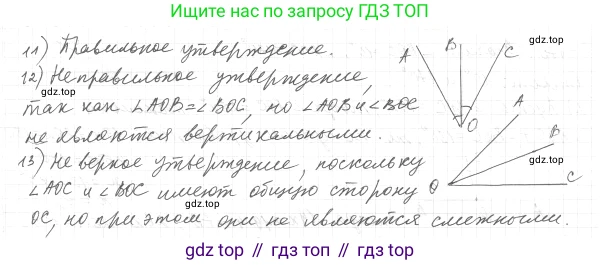 Ищите нас по запросу ГДЗ ТОП
11) Правильное утверждение.
12) Неправильное утверждение,
так как ∠AOB=∠BOC, но ∠AOB и ∠BOC
не являются вертикальными.
13) Неверное утверждение, поскольку
∠AOC и ∠BOC имеют общую сторону
OC, но при этом они не являются смежными.
A B C
O
A
B
O C
gdz.top // гдз.топ // gdz.top // гдз.топ // gdz.top